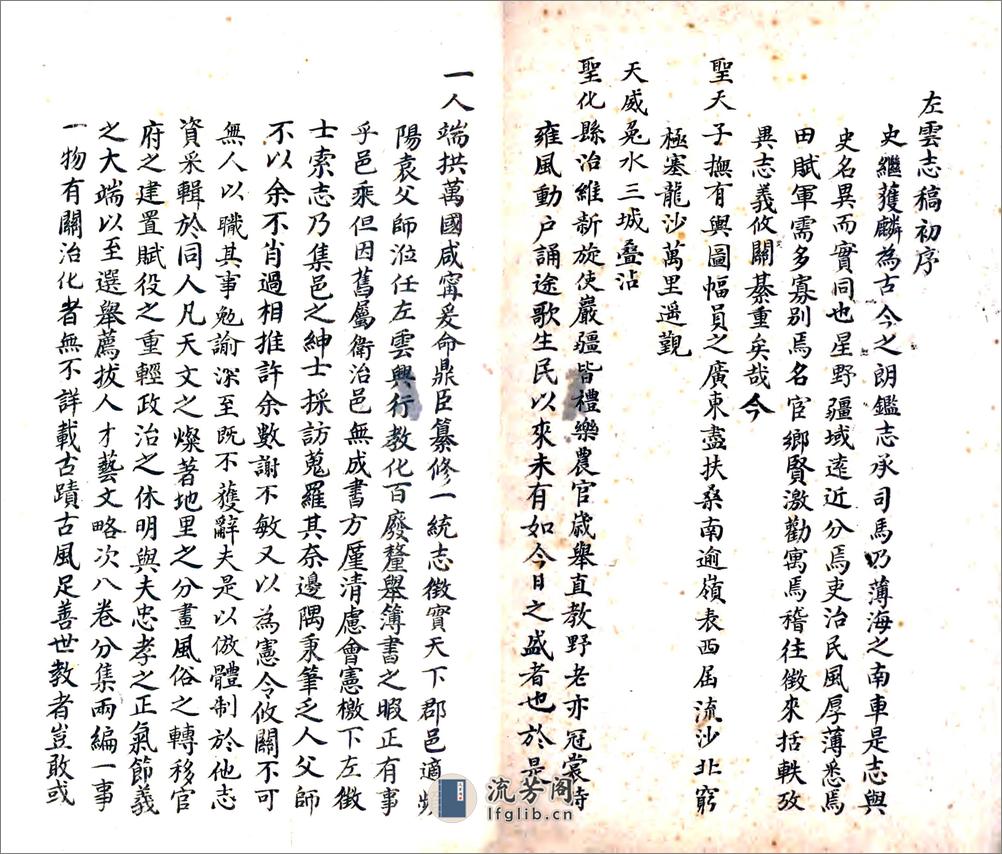 左雲志稿初序
史繼獲麟為古今之朗鑑志承司馬乃薄海之南車是志與
史名異而實同也星野疆域遠近分焉吏治民風厚薄悉焉
田賦軍需多寡別焉名宦鄉賢激勸寓焉稽往徵來括軼攷
異志義攸關綦重矣哉今
聖天子撫有輿圖幅員之廣東盡扶桑南逾嶺表西屆流沙北窮
極塞龍沙萬里遥觀
天威兔水三城叠沾
聖化縣治維新旋使巖疆皆禮樂農官歲舉直教野老亦冠裳時
雍風動戶誦途歌生民以來未有如今日之盛者也於是
一人端拱萬國咸寧爰命鼎臣纂修一統志徵實天下郡邑適
陽袁父師涖任左雲興行教化百廢釐舉簿書之暇正有事
乎邑乘但因舊屬衛治邑無成書方厪清慮會憲檄下左徵
士索志乃集邑之紳士採訪蒐羅其奈邊隅秉筆乏人父師
不以余不肖過相推許余數謝不敏又以為憲令攸關不可
無人以職其事勉諭深至既不獲辭夫是以倣體制於他志
資采輯於同人凡天文之燦著地里之分畫風俗之轉移官
府之建置賦役之重輕政治之休明與夫忠孝之正氣節義
之大端以至選舉薦拔人才藝文略次八卷分集兩編一事
一物有關治化者無不詳載古蹟古風足善世教者豈敢或
流芳阁
lfglib.cn